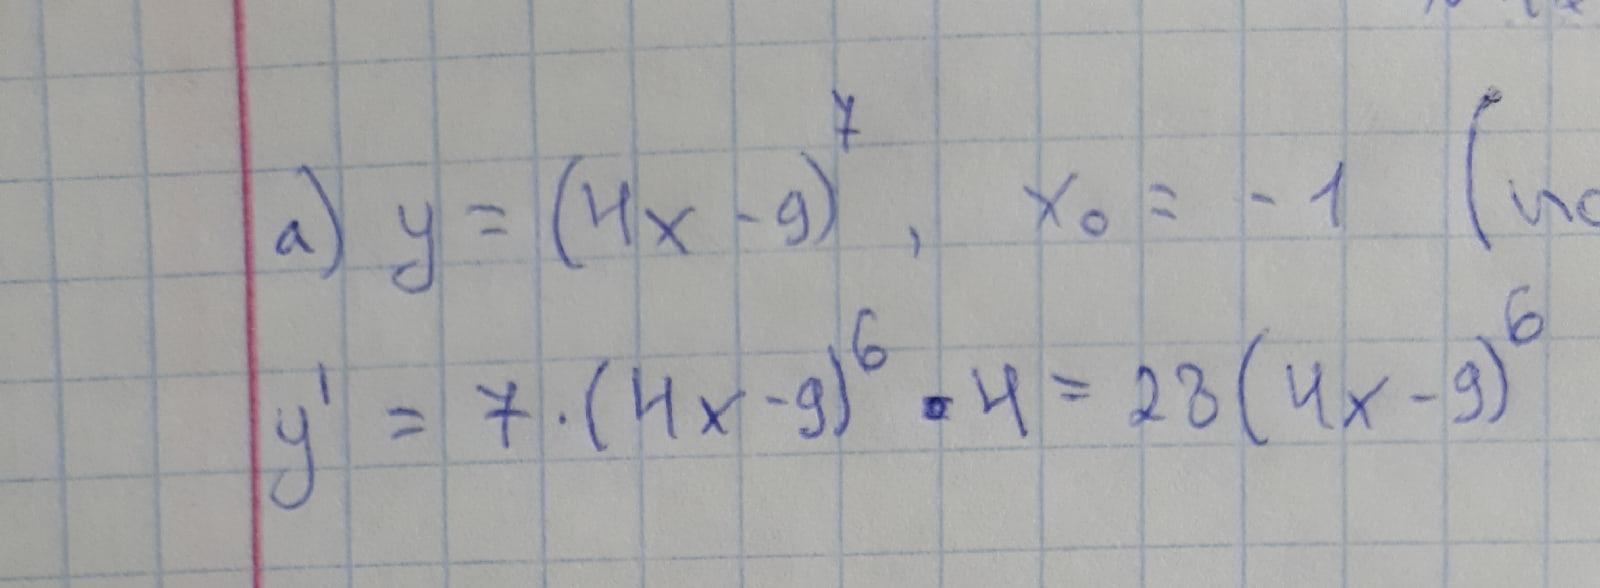 а) y = (4x - 9)^7, x₀ = -1 (
y' = 7·(4x - 9)^6 · 4 = 28(4x - 9)^6